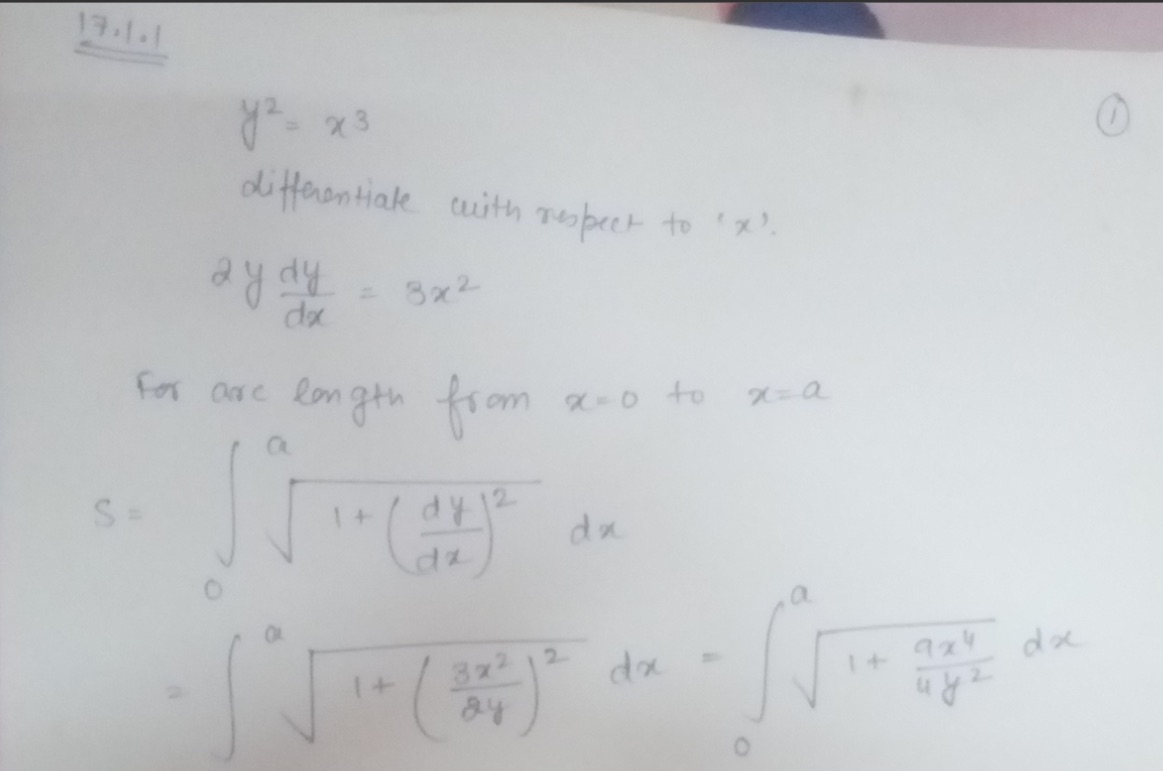 17.1.1
①
y² = x³
differentiate with respect to 'x'.
2y dy/dx = 3x²
For arc length from x=0 to x=a
S = ∫₀ᵃ √(1 + (dy/dx)²) dx
= ∫ᵃ √(1 + (3x²/2y)²) dx = ∫₀ᵃ √(1 + 9x⁴/4y²) dx